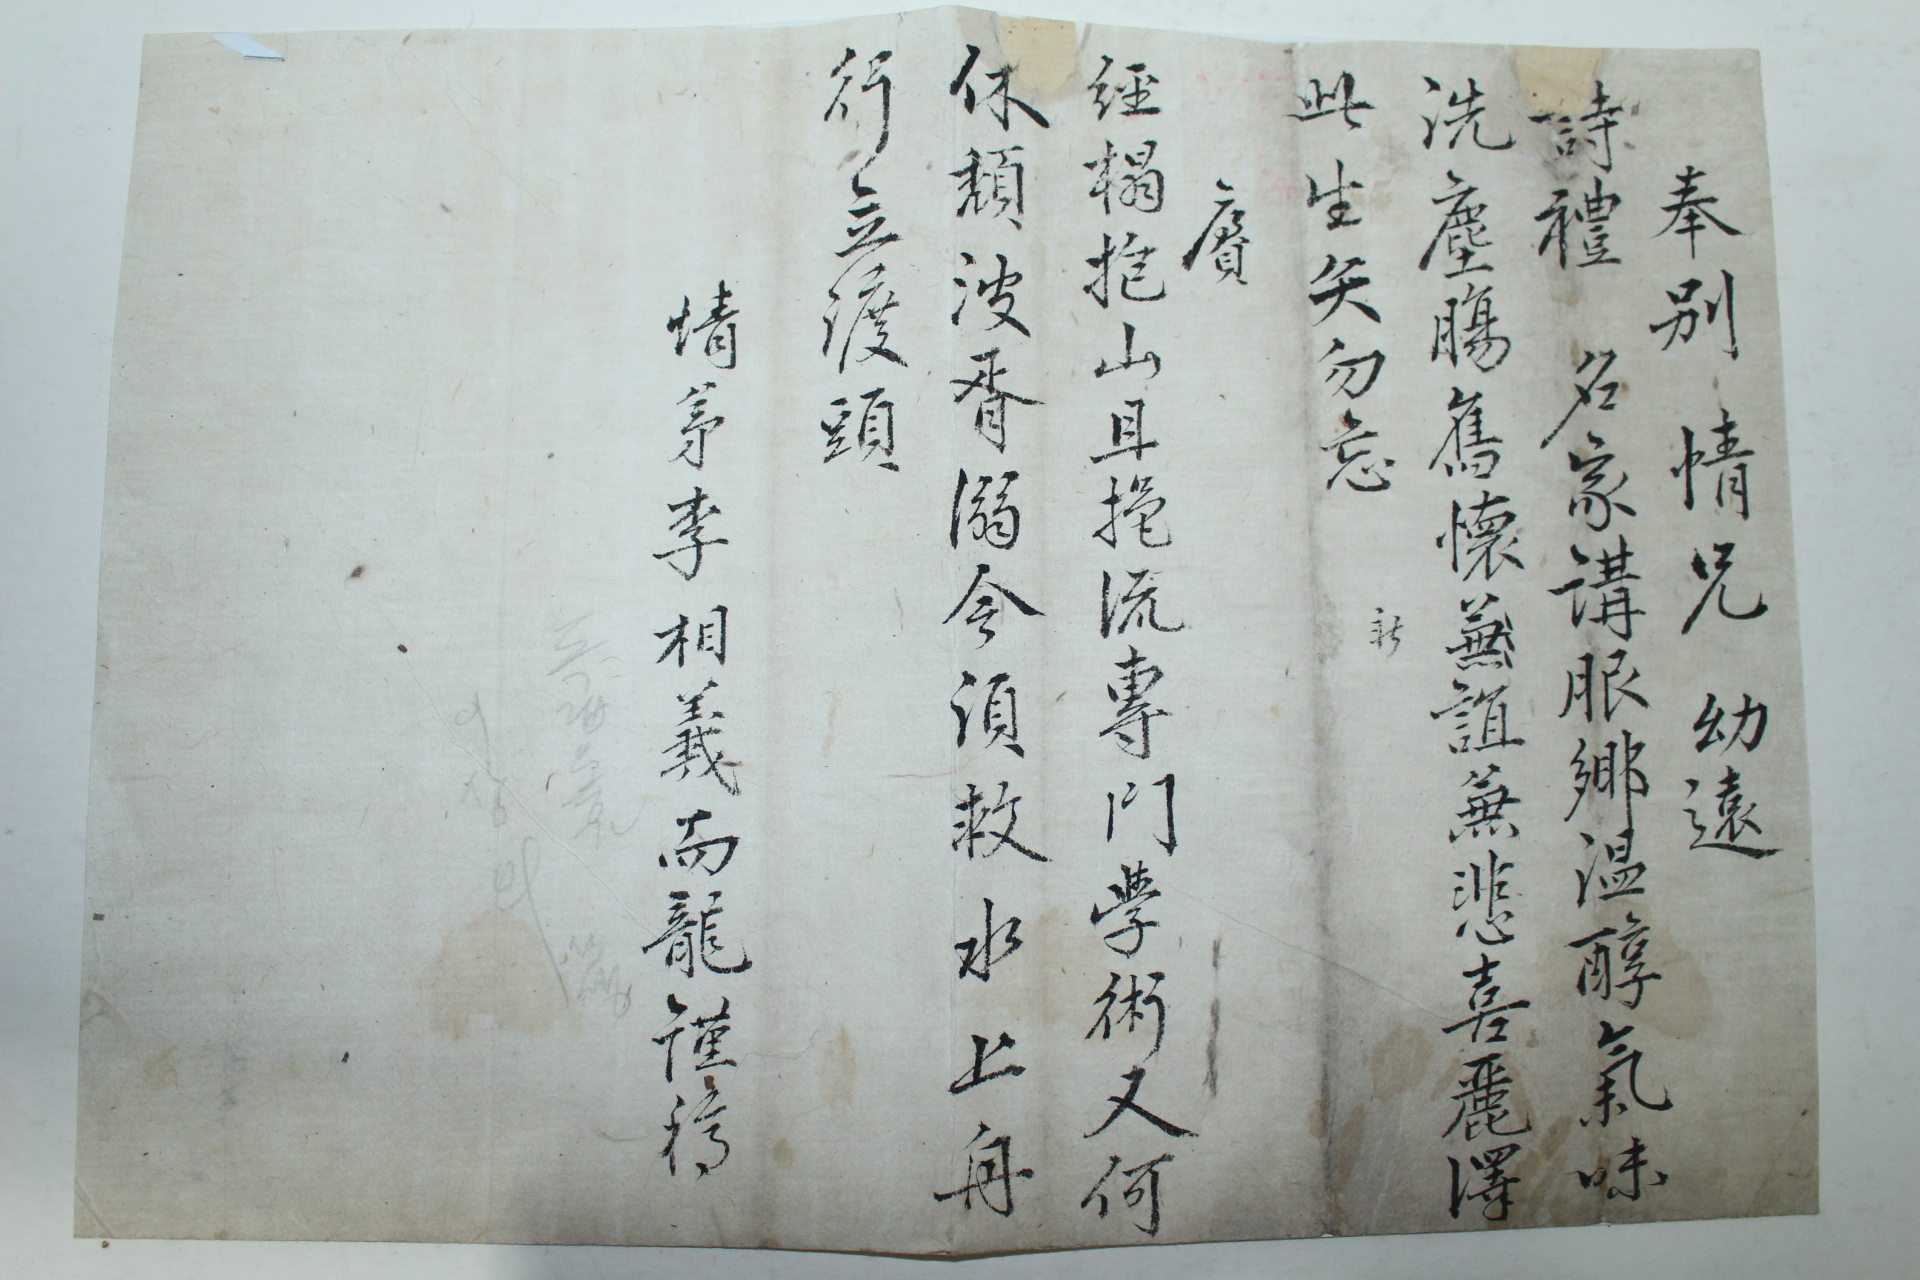 奉別 情兄 幼遠
詩禮 名家講服鄉溫醇氣味
洗塵膓舊懷無誼無悲喜麗澤
此生矢勿忘
賡
經榻抱山且挹流專門學術又何
休頹波胥溺今須救水上舟
行立渡頭
情弟李相義而龍謹稿